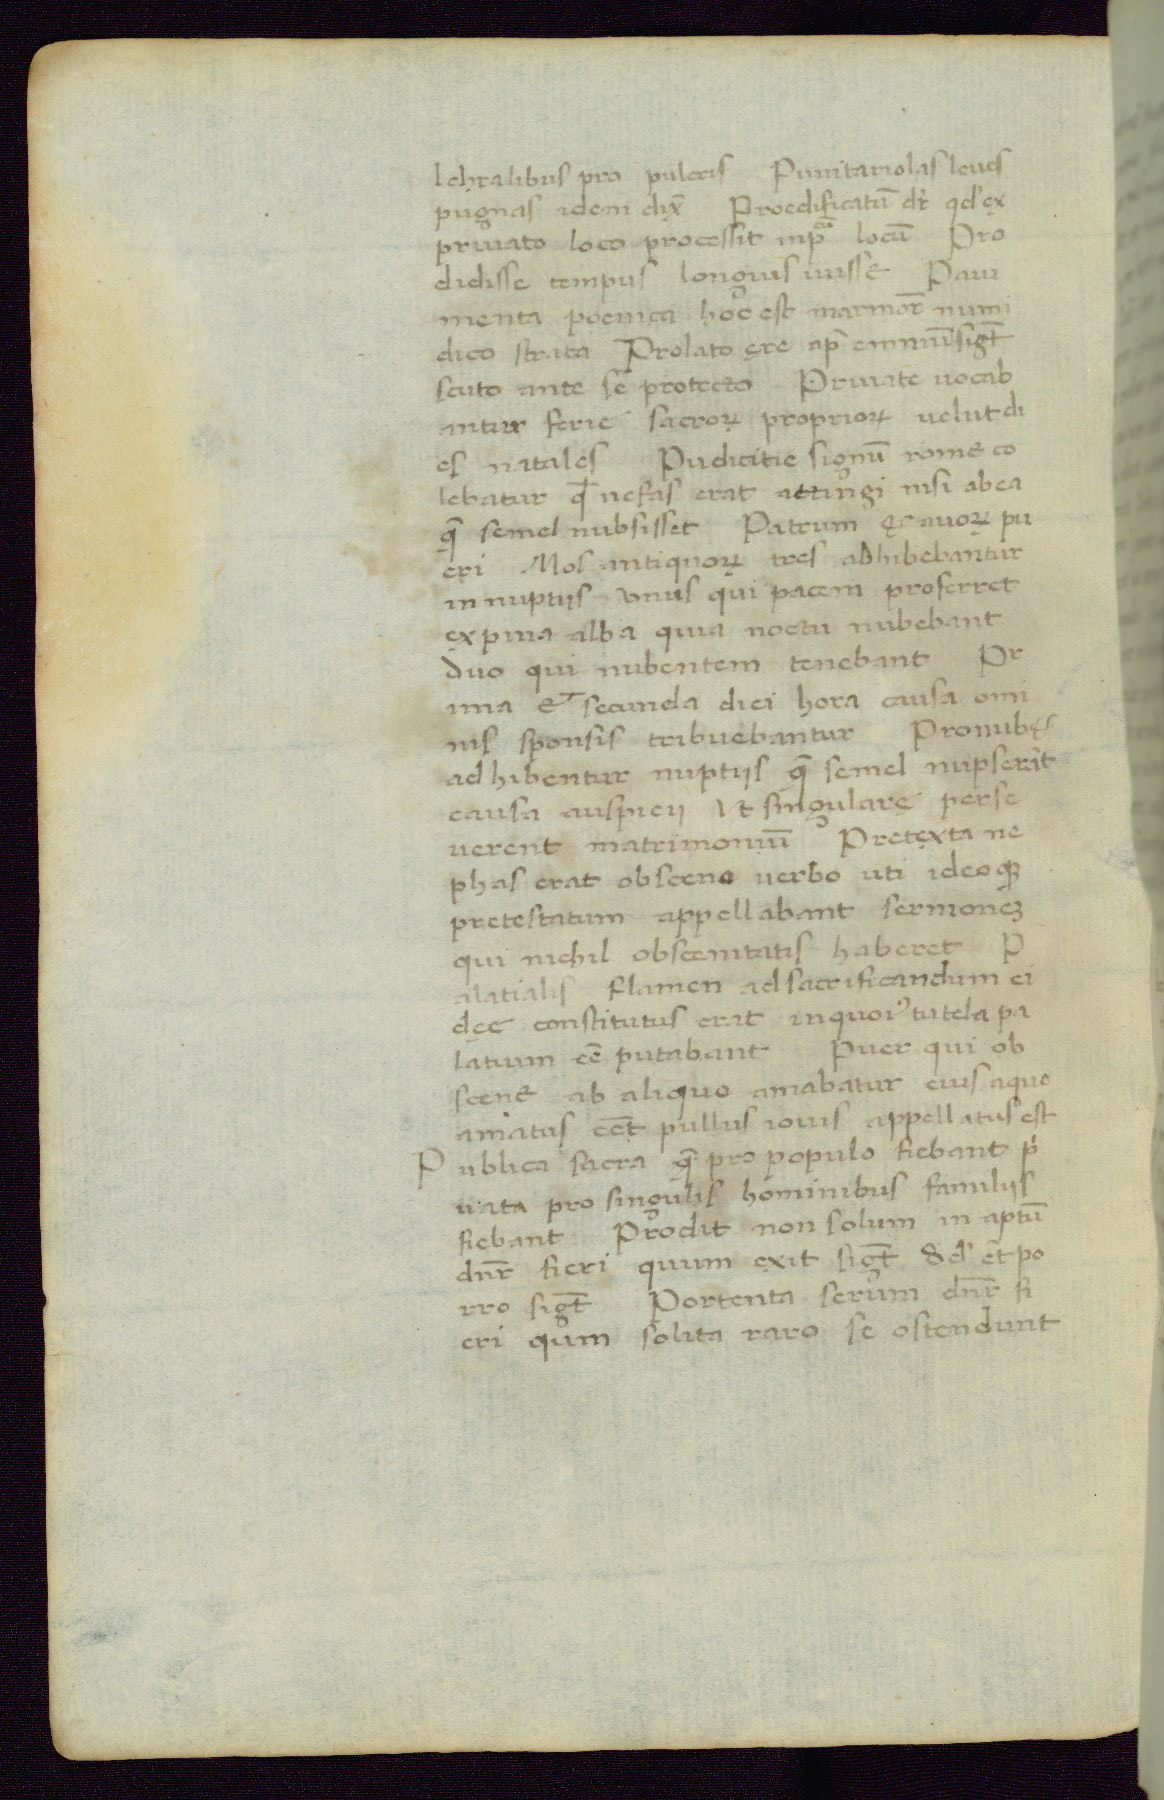 lchralibus pro pulcris Punitariolas leues
pugnas idem dix̄ Proedificatū dr̄ qd' ex
priuato loco processit inp̄ locū Pro
didisse tempus longius iuisse Paui
menta poenica hoc est marmor̄ numi
dico strata Prolato ęre ap̄ enniū sigt̄
scuto ante se protecto Priuate uocab
antur ferie sacroꝝ proprioꝝ uelut di
es natales Pudicitie signū rome co
lebatur qḏ nefas erat attingi nisi abea
q̄ semel nubsisset Patrum & auoꝝ pu
eri Mos antiquoꝝ tres adhibebantur
in nuptijs vnus qui pacem proferret
ex pina alba quia noctu nubebant
duo qui nubentem tenebant Pr
ima & secunda diei hora causa omi
nis sponsis tribuebantur Pronubęs
adhibentur nuptijs q̄ semel nupserūt
causa auspicij vt singulare perse
uerent matrimoniū Pretexta ne
phas erat obsceno uerbo uti ideoqꝫ
pretestatum appellabant sermoneꝫ
qui nichil obscenitatis haberet P
alatialis flamen ad sacrificandum ei
deę constitutus erat inquoi' tutela pa
latium eē putabant Puer qui ob
scene ab aliquo amabatur eius aquo
amatus eēt pullus iouis appellatus est
Publica sacra q̄ pro populo fiebant pi
uata pro singulis hominibus familiis
fiebant Prodit non solum in aptū
dnr̄ fieri quum exit sigt̄ sed' ēt po
rro sigt̄ Portenta serum dnr̄ fi
eri qum solita raro se ostendunt